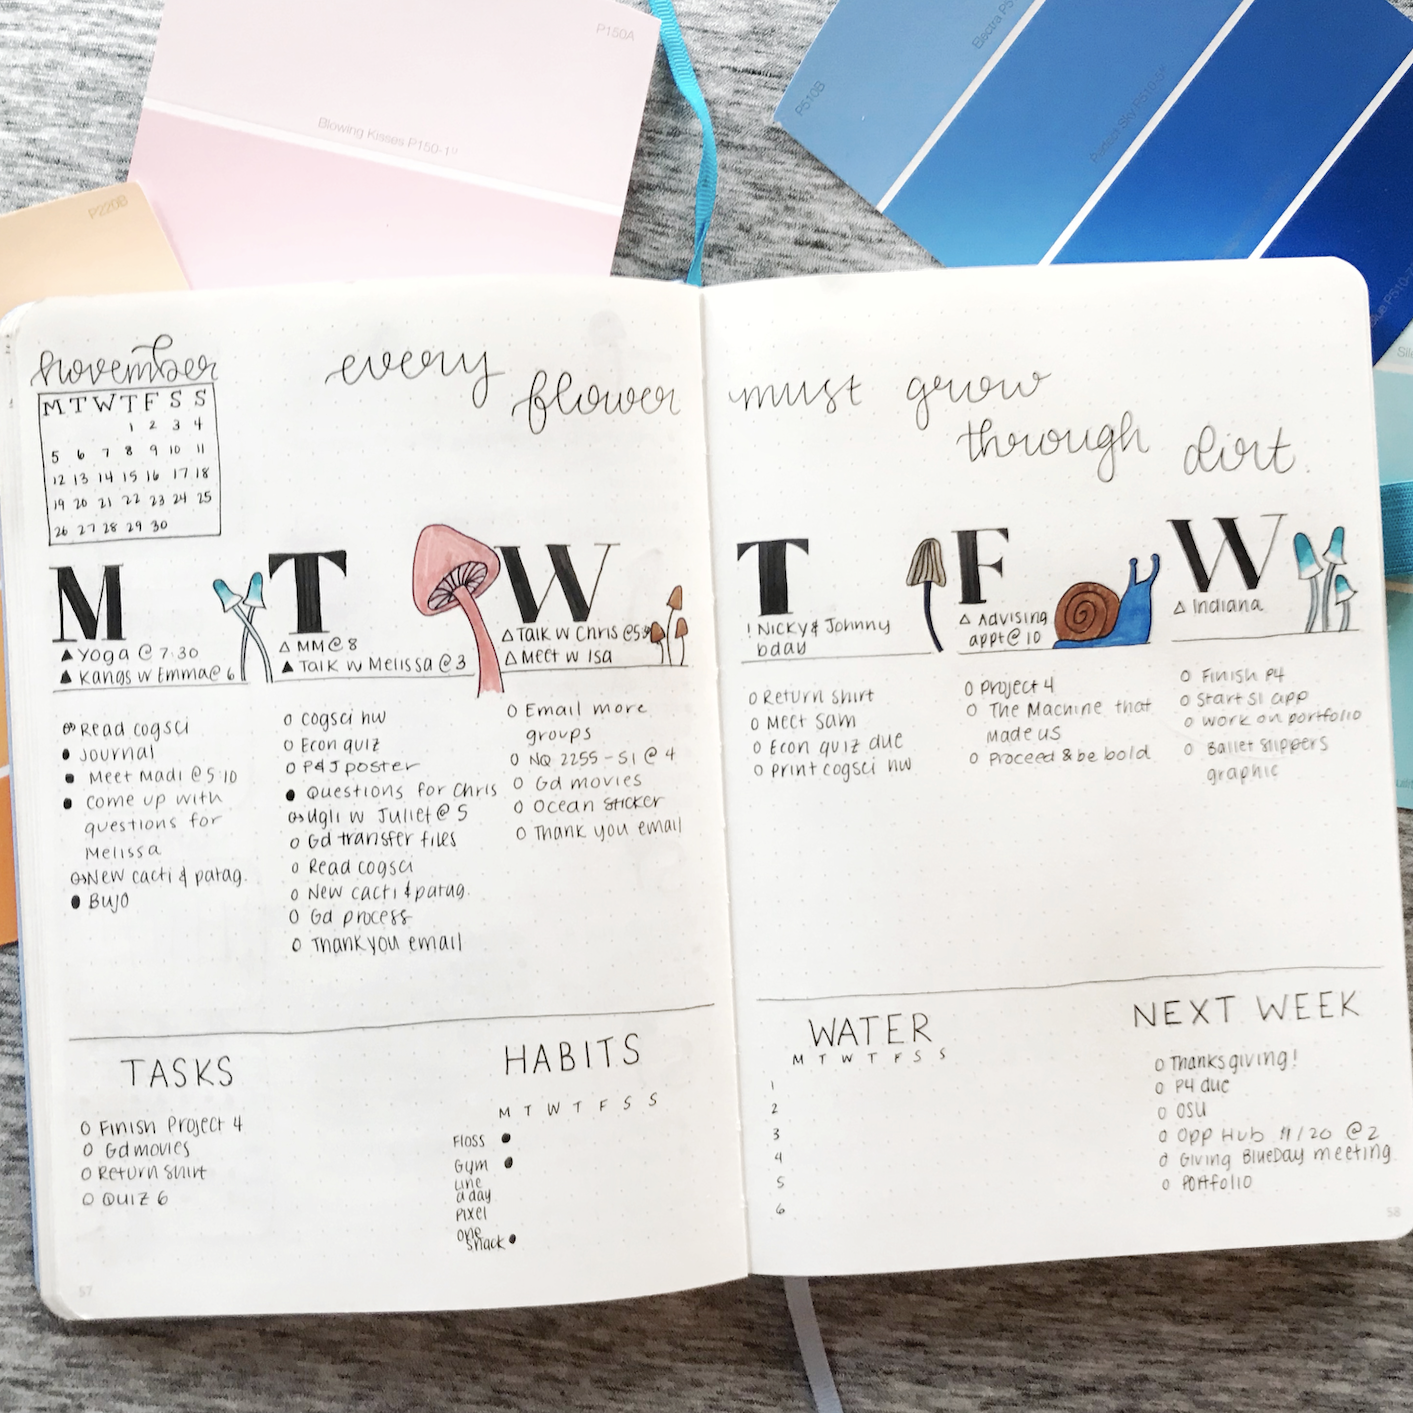 P150A
Blowing Kisses P150-1
P220B
P510B
november
M T W T F S S
1 2 3 4
5 6 7 8 9 10 11
12 13 14 15 16 17 18
19 20 21 22 23 24 25
26 27 28 29 30
every
flower
must grow
through dirt.
M
▲ Yoga @ 7:30
▲ Kangs w Emma@ 6
Read cogsci
Journal
Meet Madi @ 5:10
Come up with
questions for
Melissa
New cacti & patag.
BUJO
T
△ MM @ 8
▲ Talk w Melissa @ 3
Cogsci hw
Econ quiz
P&J poster
Questions for Chris
Ugli w Juliet @ 5
Gd transfer files
Read cogsci
New cacti & patag.
Gd process
Thank you email
W
△ Talk w Chris @
△ Meet w Isa
Email more
groups
NQ 2255 - SI @ 4
Gd movies
Ocean sticker
Thank you email
T
! Nicky & Johnny
bday
Return shirt
Meet Sam
Econ quiz due
Print cogsci hw
F
△ Advising
appt @ 10
Project 4
The Machine that
made us
Proceed & be bold
W
△ Indiana
Finish P4
Start SI app
Work on portfolio
Ballet Slippers
graphic
TASKS
Finish Project 4
Gd movies
Return shirt
Quiz 6
HABITS
M T W T F S S
Floss
Gym
Line
a day
Pixel
One
Snack
57
WATER
M T W T F S S
1
2
3
4
5
6
NEXT WEEK
Thanksgiving!
P4 due
OSU
Opp Hub 11/20 @ 2
Giving BlueDay meeting
Portfolio
58